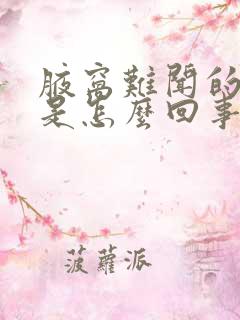 腋窩難聞的
是怎麼回事
菠蘿派